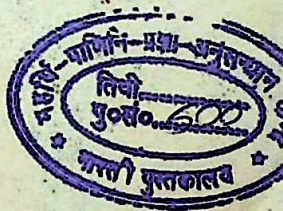 महर्षि-पाणिनि-प्रज्ञा-अनुसन्धान
तिथी..........
पु०सं० 600
भारती पुस्तकालय